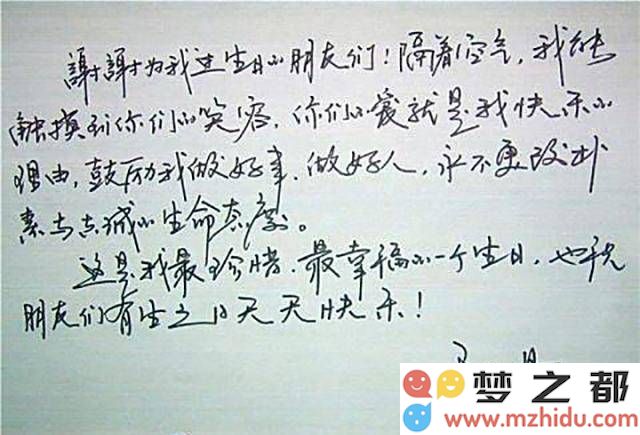 謝謝为我过生日的朋友们！隔着空气，我能
触摸到你们的笑容，你们的爱就是我快乐的
理由，鼓励我做好事、做好人，永不更改朴
素与真诚的生命态度。
这是我最珍惜、最幸福的一个生日，也祝
朋友们有生之日天天快乐！
梦之都
www.mzhidu.com